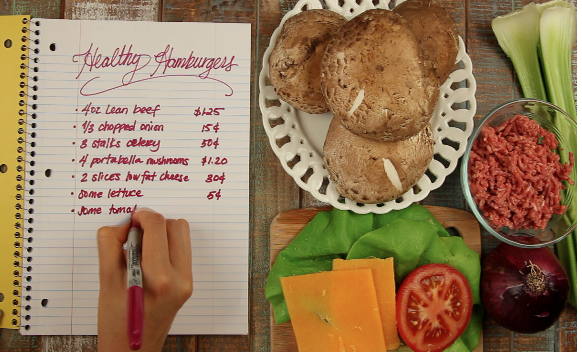 Healthy Hamburgers
· 4oz Lean beef $1.25
· 1/3 chopped onion 15¢
· 3 stalks celery 50¢
· 4 portabella mushrooms $1.20
· 2 slices low fat cheese 30¢
· Some lettuce 5¢
· Some toma